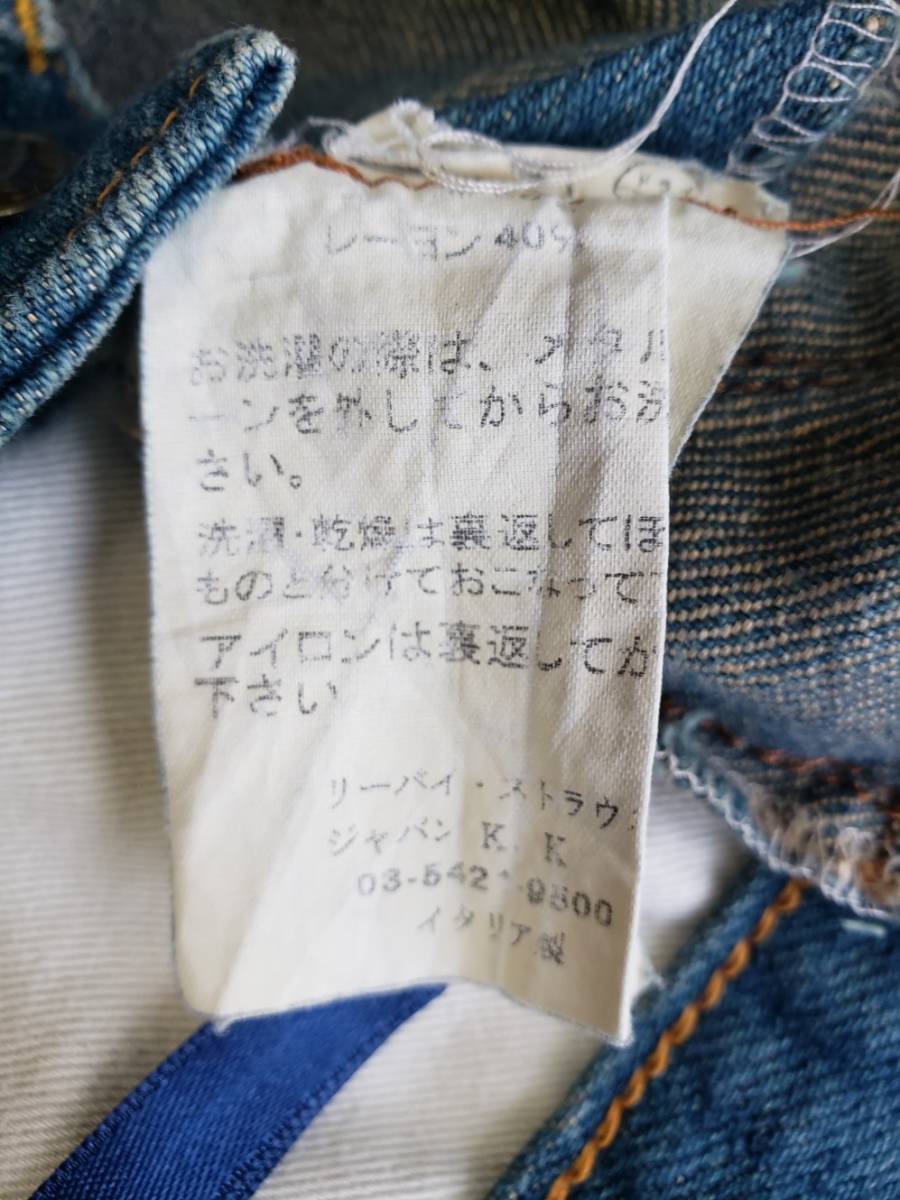 レーヨン 40%
お洗濯の際は、メタル
ーンを外してからお洗
さい。
洗濯・乾燥は裏返してほ
ものと分けておこなって
アイロンは裏返してか
下さい
リーバイ・ストラウ
ジャパン K. K
イタリア製